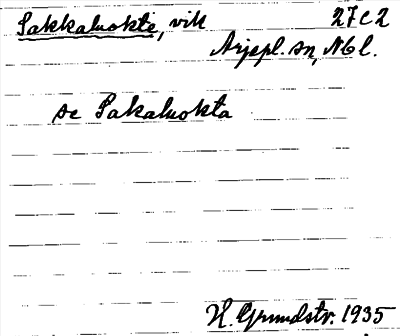 Sakkaluokte, vik 27c2
Arjepl. sn, Nbl.
se Sakaluokta
H. Grundstr. 1935